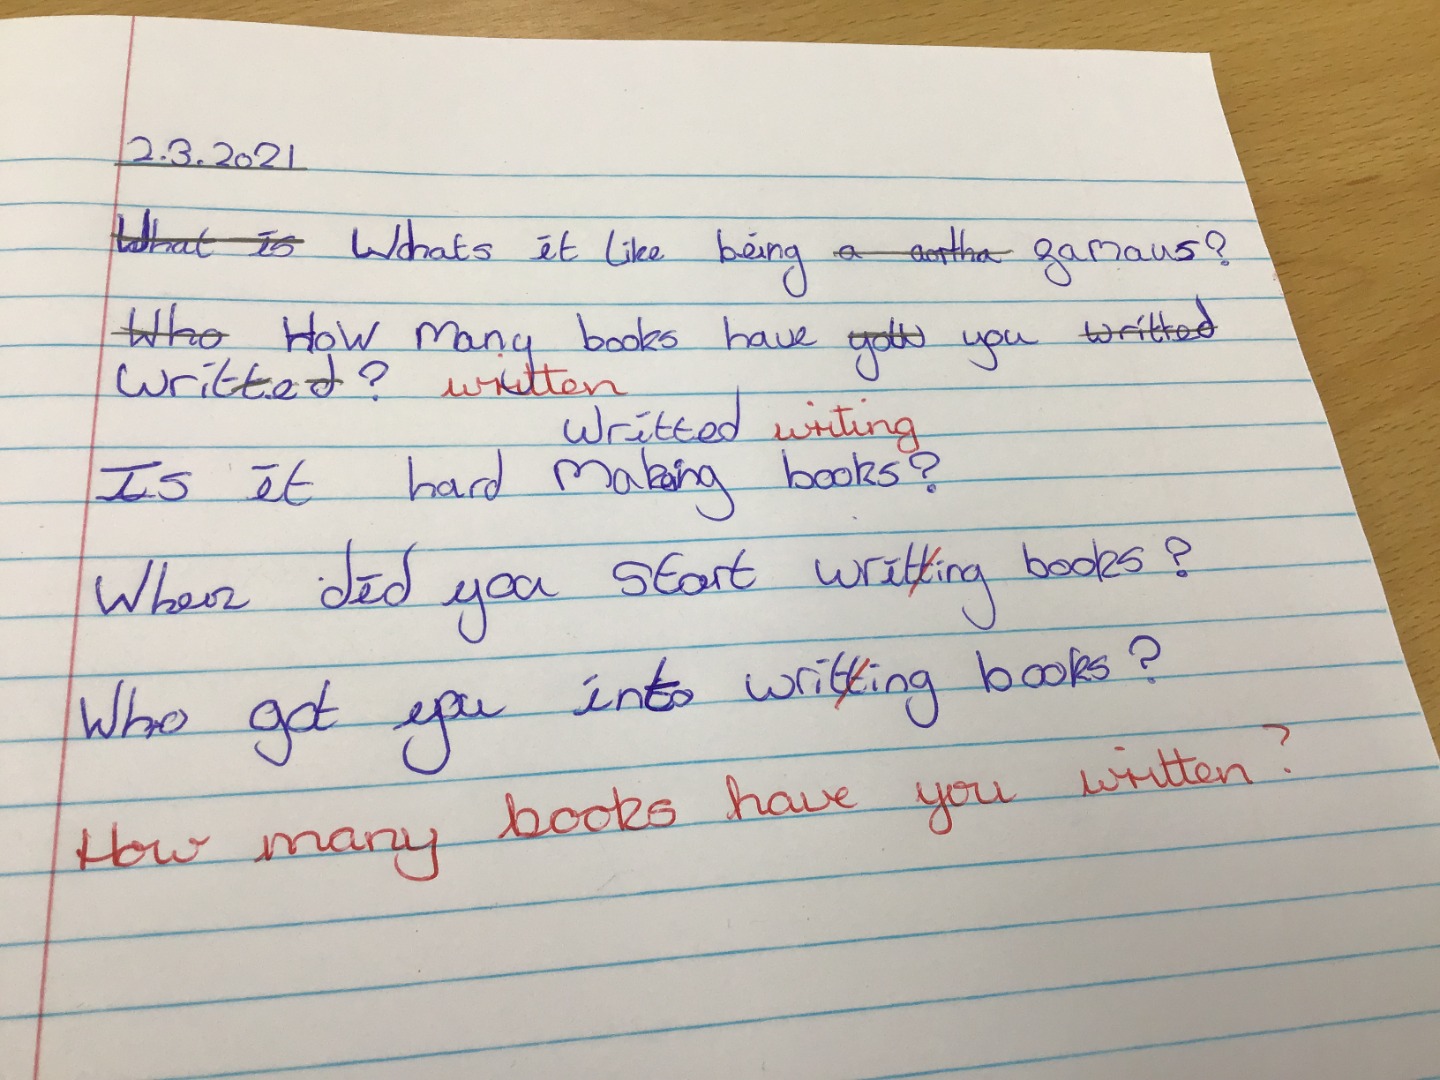 2.3.2021
What is Whats it like being a aortha gamaus?
Who How many books have you you writted
writted? written
writted writing
Is it hard making books?
When did you start writting books?
Who got you into writting books?
How many books have you written?